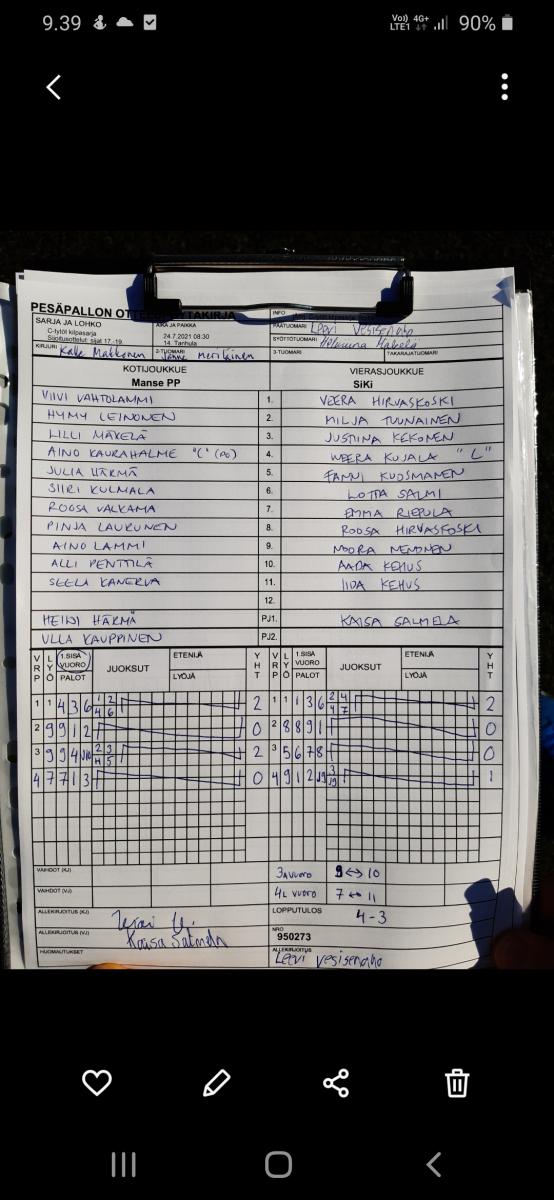 9.39
Vo)) 4G+ LTE1 90%
PESÄPALLON OTTE YTÄKIRJA
INFO
SARJA JA LOHKO
C-tytöt kilpasarja
Sijoitusottelut: sijat 17-19.
AIKA JA PAIKKA
24.7.2021 08:30
14. Tanhula
PÄÄTUOMARI Leevi Vesisenaho
SYÖTTÖTUOMARI
KIRJURI Kalle Makkonen
2-TUOMARI Meriläinen
3-TUOMARI
TAKARAJATUOMARI
KOTIJOUKKUE VIERASJOUKKUE
Manse PP SiKi
VIIVI VAHTOLAMMI 1. VEERA HIRVASKOSKI
HYMY LEINONEN 2. MILJA TUUNAINEN
LILLI MÄKELÄ 3. JUSTIINA KEKONEN
AINO KAURAHALME "C" (PO) 4. WEERA KUJALA "L"
JULIA HÄRMÄ 5. FANNI KUOSMANEN
SIIRI KULMALA 6. LOTTA SALMI
ROOSA VALKAMA 7. EMMA RIEPULA
PINJA LAURUNEN 8. ROOSA HIRVASKOSKI
AINO LAMMI 9. NOORA NENONEN
ALLI PENTTILÄ 10. AADA KEHUS
SEELA KANERVA 11. IIDA KEHUS
12.
HEINI HÄRMÄ PJ1. KAISA SALMELA
ULLA KAUPPINEN PJ2.
VRP LYÖ 1.SISÄ VUORO PALOT JUOKSUT ETENIJÄ LYÖJÄ YHT VRP LYÖ 1.SISÄ VUORO PALOT JUOKSUT ETENIJÄ LYÖJÄ YHT
1 1 4 3 6 1 2 4 6 2 1 1 1 3 6 2 4 4 7 2
2 9 9 1 2 0 2 8 8 9 1 0
3 9 9 4 2 3 4 5 2 3 5 6 7 8 0
4 7 7 1 3 0 4 9 1 2 1
VAIHDOT (KJ) 3A vuoro 9 ↔ 10
VAIHDOT (VJ) 4L vuoro 7 ↔ 11
ALLEKIRJOITUS (KJ)
LOPPUTULOS 4-3
ALLEKIRJOITUS (VJ) Kaisa Salmela
NRO
950273
HUOMAUTUKSET
ALLEKIRJOITUS
Leevi Vesisenaho